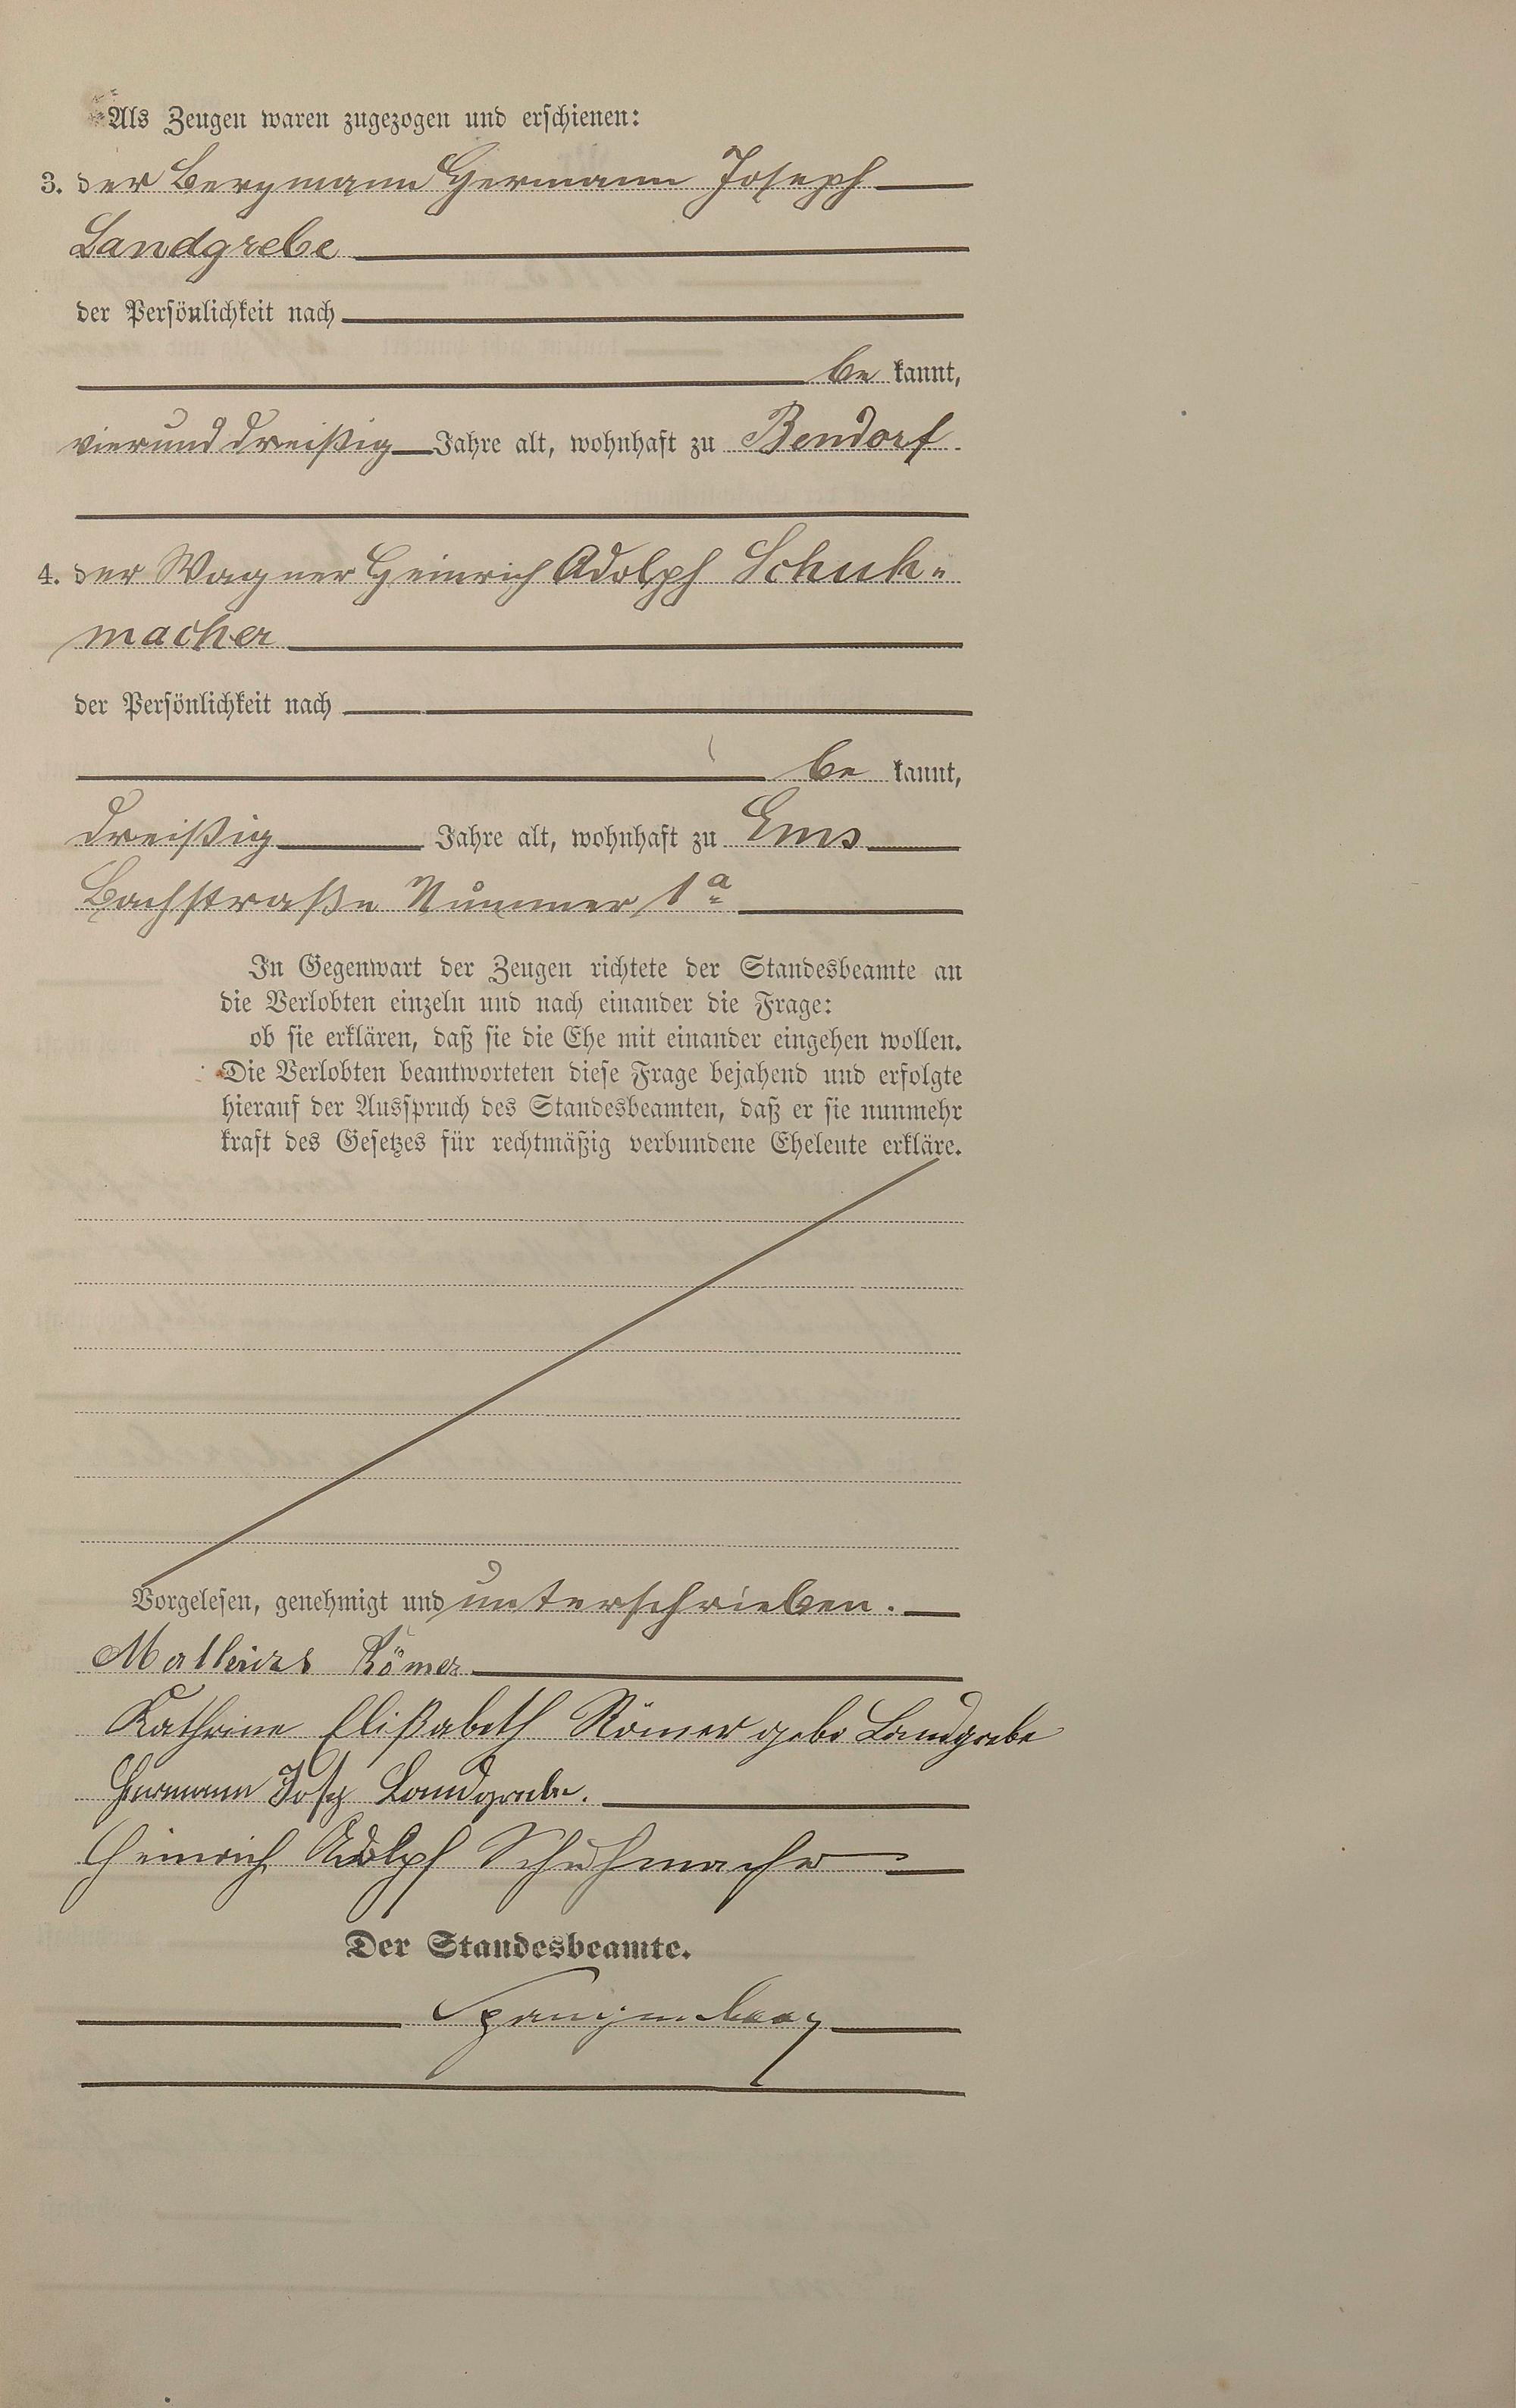 Als Zeugen waren zugezogen und erschienen:
3. der Bergmann Hermann Joseph
Landgrebe
der Persönlichkeit nach
be kannt,
vierunddreißig Jahre alt, wohnhaft zu Bendorf
4. der Wagner Heinrich Adolph Schuh-
macher
der Persönlichkeit nach
be kannt,
dreißig Jahre alt, wohnhaft zu Ems
Bachstraße Nummer 1a
In Gegenwart der Zeugen richtete der Standesbeamte an
die Verlobten einzeln und nach einander die Frage:
ob sie erklären, daß sie die Ehe mit einander eingehen wollen.
Die Verlobten beantworteten diese Frage bejahend und erfolgte
hierauf der Ausspruch des Standesbeamten, daß er sie nunmehr
kraft des Gesetzes für rechtmäßig verbundene Eheleute erkläre.
Vorgelesen, genehmigt und unterschrieben.
Römer
Kathrine Elißabeth Römer geb. Landgrebe
Hermann Josep Landgrebe.
Heinrich Adolph Schuhmacher
Der Standesbeamte.
Spangenberg